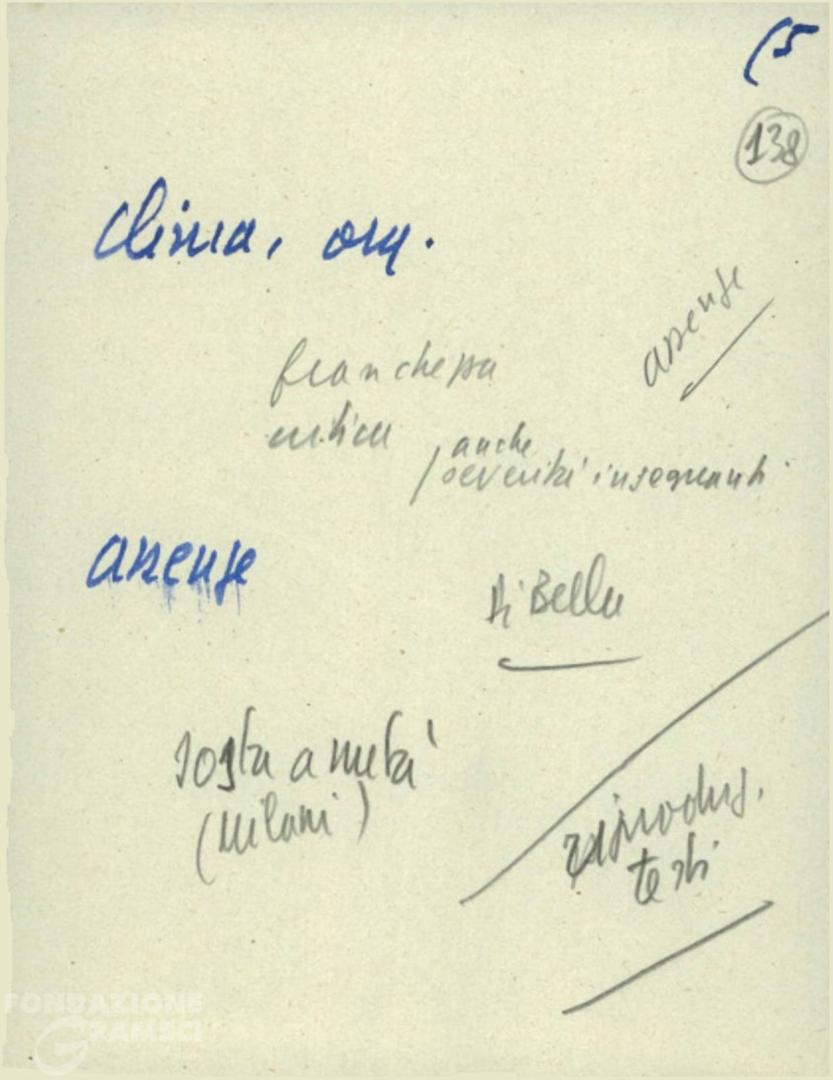 (5
138
clima, org.
assenze
franchezza
critica
anche
severità insegnanti
assenze
Di Bella
sosta a metà
(Milani)
riproduz.
testi
FONDAZIONE
GRAMSCI